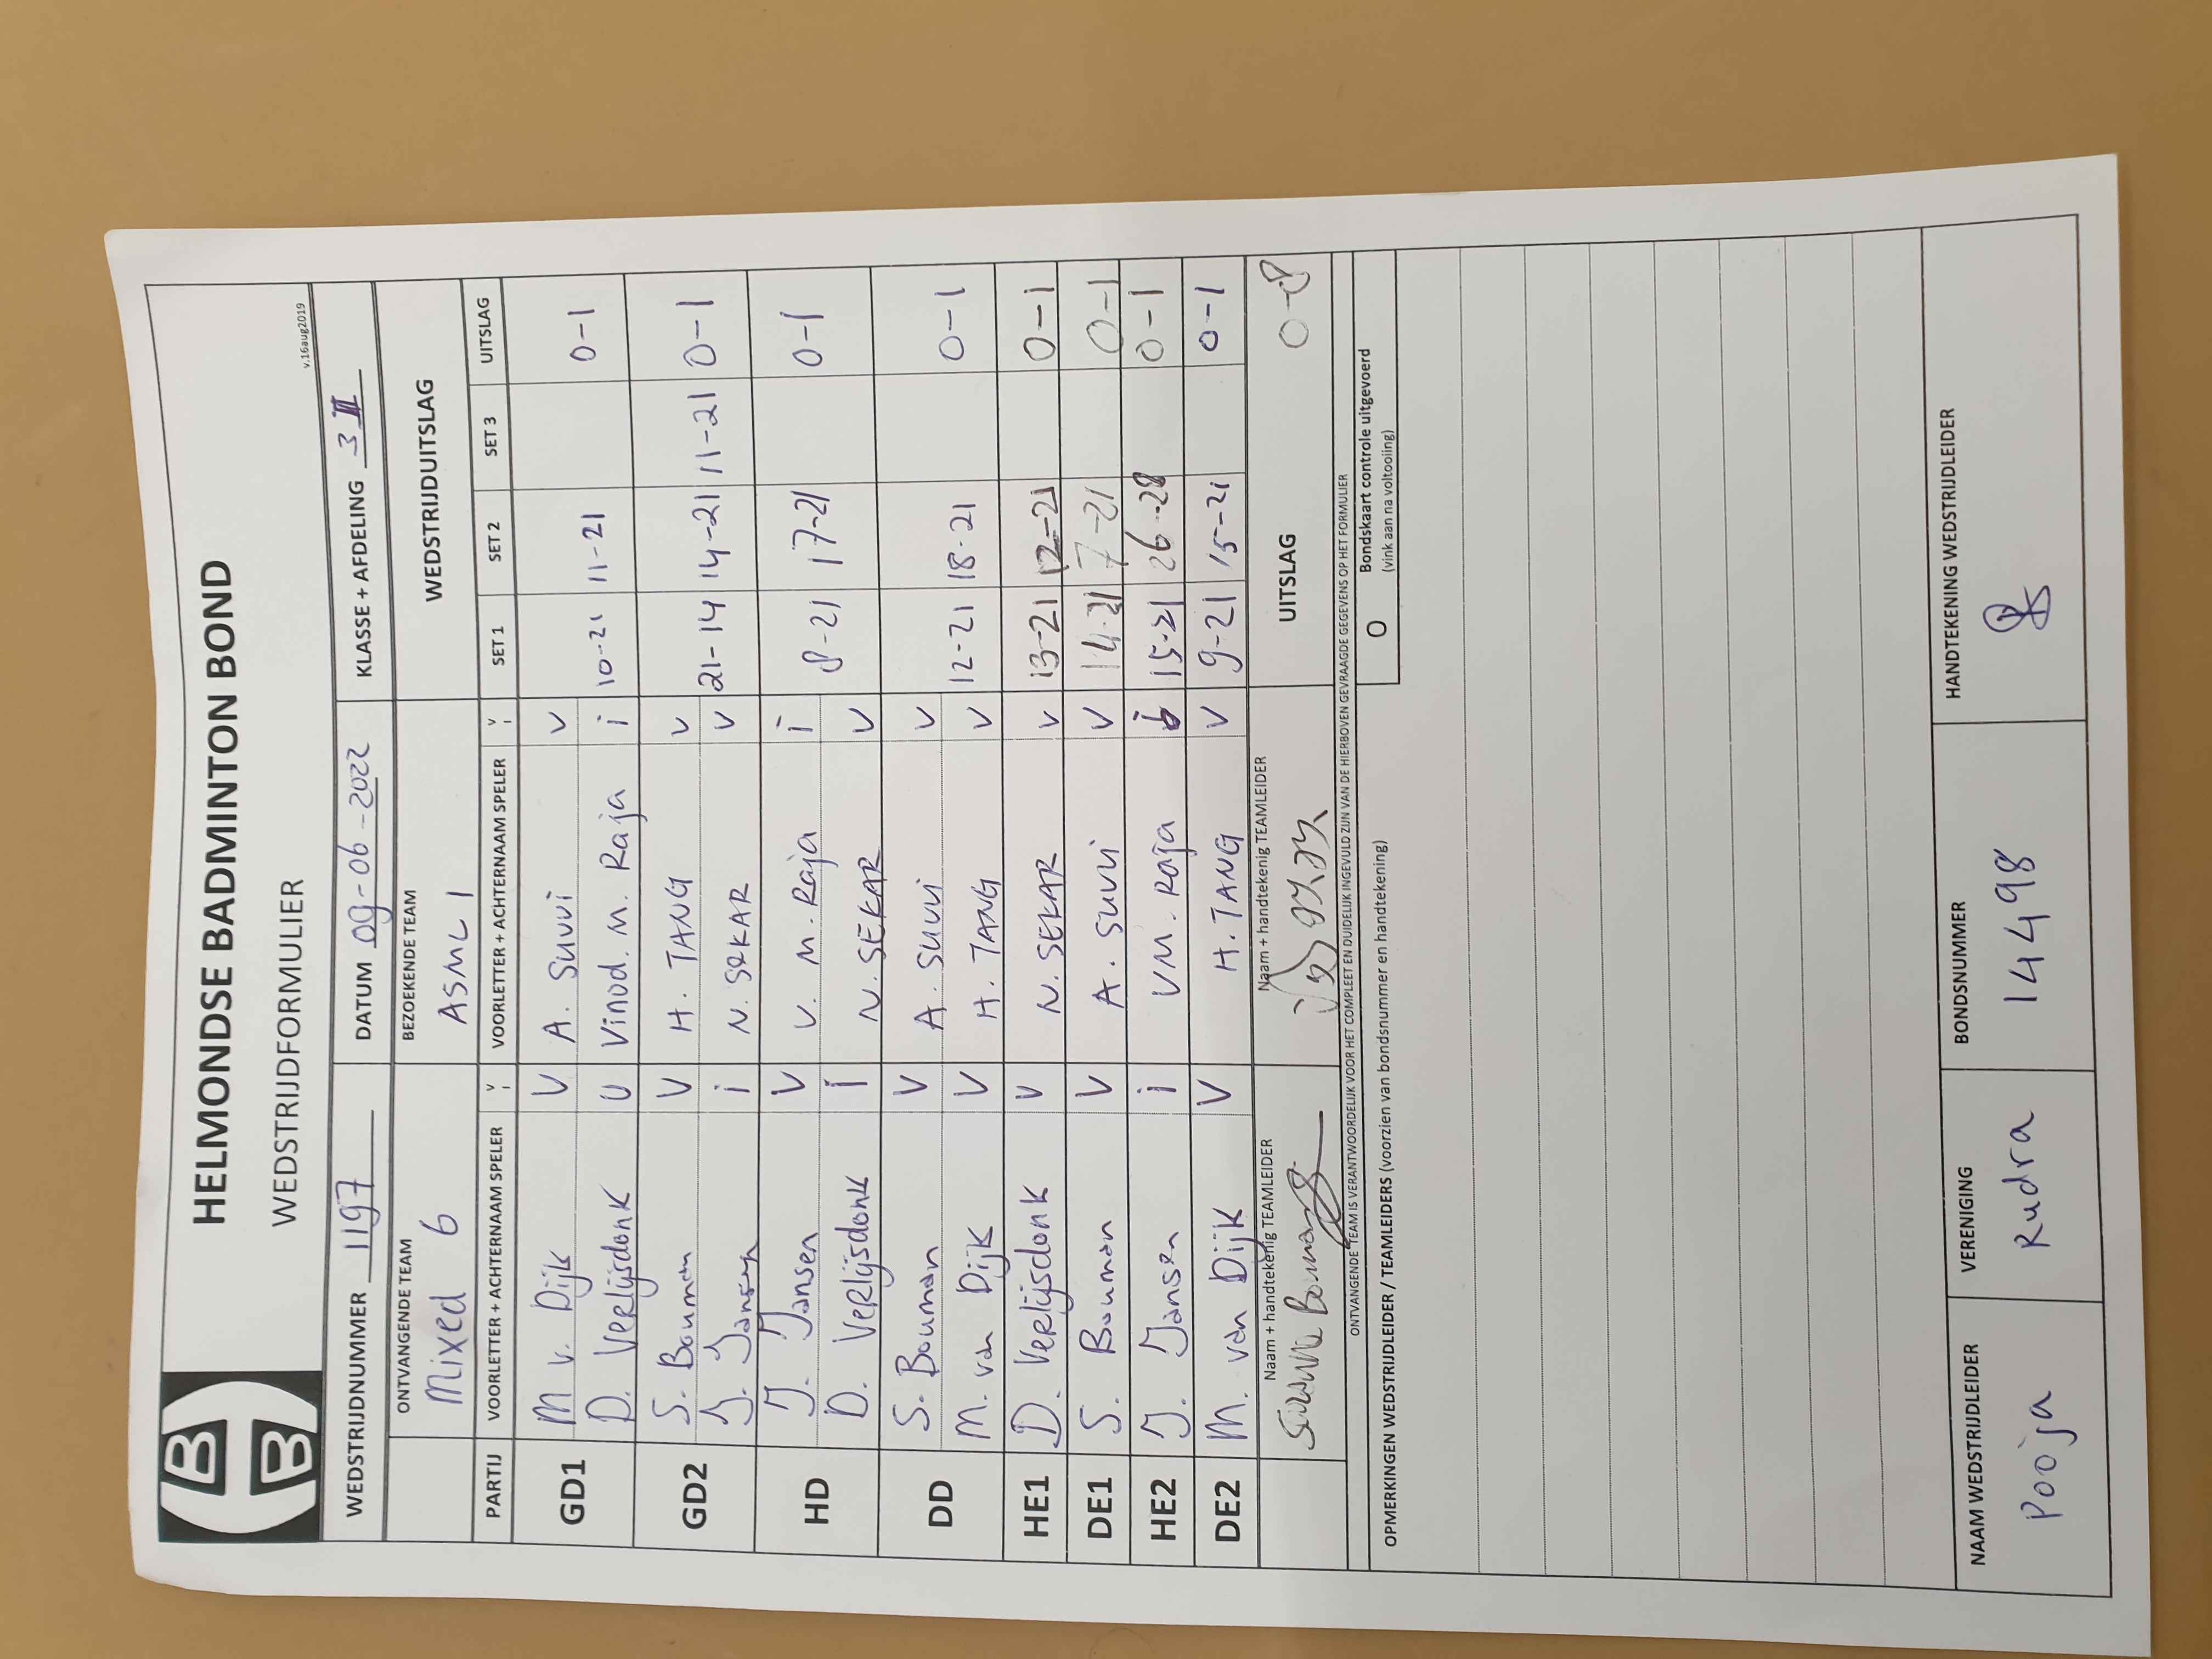 HB
B
HELMONDSE BADMINTON BOND
WEDSTRIJDFORMULIER
v.16aug2019
WEDSTRIJDNUMMER 1197 DATUM 09-06-2022 KLASSE + AFDELING 3 II
ONTVANGENDE TEAM BEZOEKENDE TEAM WEDSTRIJDUITSLAG
Mixed 6 ASML 1
PARTIJ VOORLETTER + ACHTERNAAM SPELER V I VOORLETTER + ACHTERNAAM SPELER V I SET 1 SET 2 SET 3 UITSLAG
GD1 M v. Dijk V A. Suvvi V
D. Verlijsdonk V Vinod. M. Raja i 10-21 11-21 0-1
GD2 S. Bouman V H. TANG V
J. Jansen i N. SEKAR V 21-14 14-21 11-21 0-1
HD J. Jansen V V. M. Raja i
D. Verlijsdonk i N. SEKAR V 8-21 17-21 0-1
DD S. Bouman V A. Suvvi V
M. van Dijk V H. TANG V 12-21 18-21 0-1
HE1 D. Verlijsdonk V N. SEKAR V 13-21 12-21 0-1
DE1 S. Bouman V A. Suvvi V 14-21 7-21 0-1
HE2 J. Jansen i VM. Raja i 15-21 26-28 0-1
DE2 M. van Dijk V H. TANG V 9-21 15-21 0-1
Naam + handtekenig TEAMLEIDER Naam + handtekenig TEAMLEIDER UITSLAG 0-8
Bouman
ONTVANGENDE TEAM IS VERANTWOORDELIJK VOOR HET COMPLEET EN DUIDELIJK INGEVULD ZIJN VAN DE HIERBOVEN GEVRAAGDE GEGEVENS OP HET FORMULIER
O Bondskaart controle uitgevoerd
(vink aan na voltooiing)
OPMERKINGEN WEDSTRIJDLEIDER / TEAMLEIDERS (voorzien van bondsnummer en handtekening)
NAAM WEDSTRIJDLEIDER VERENIGING BONDSNUMMER HANDTEKENING WEDSTRIJDLEIDER
Pooja Rudra 14498